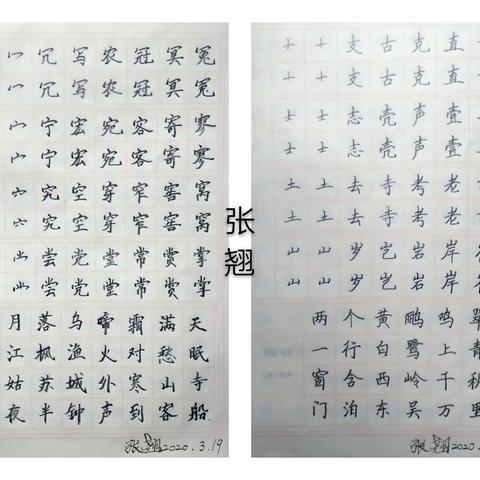 冖冗写农冠冥冤
冖冗写农冠冥冤
宀宁宏宛客寄寥
宀宁宏宛客寄寥
穴究空穿窄窖窝
穴究空穿窄窖窝
尝党堂常赏掌
尝党堂常赏掌
月落乌啼霜满天
江枫渔火对愁眠
姑苏城外寒山寺
夜半钟声到客船
张翘2020.3.19
张翘
十十支古克直
十十支古克直
士士志壳声壹
士士志壳声壹
土土去寺考老
土土去寺考老
山山岁岂岩岸
山山岁岂岩岸
两个黄鹂鸣翠
一行白鹭上青
窗含西岭千秋
门泊东吴万里
张翘2020.